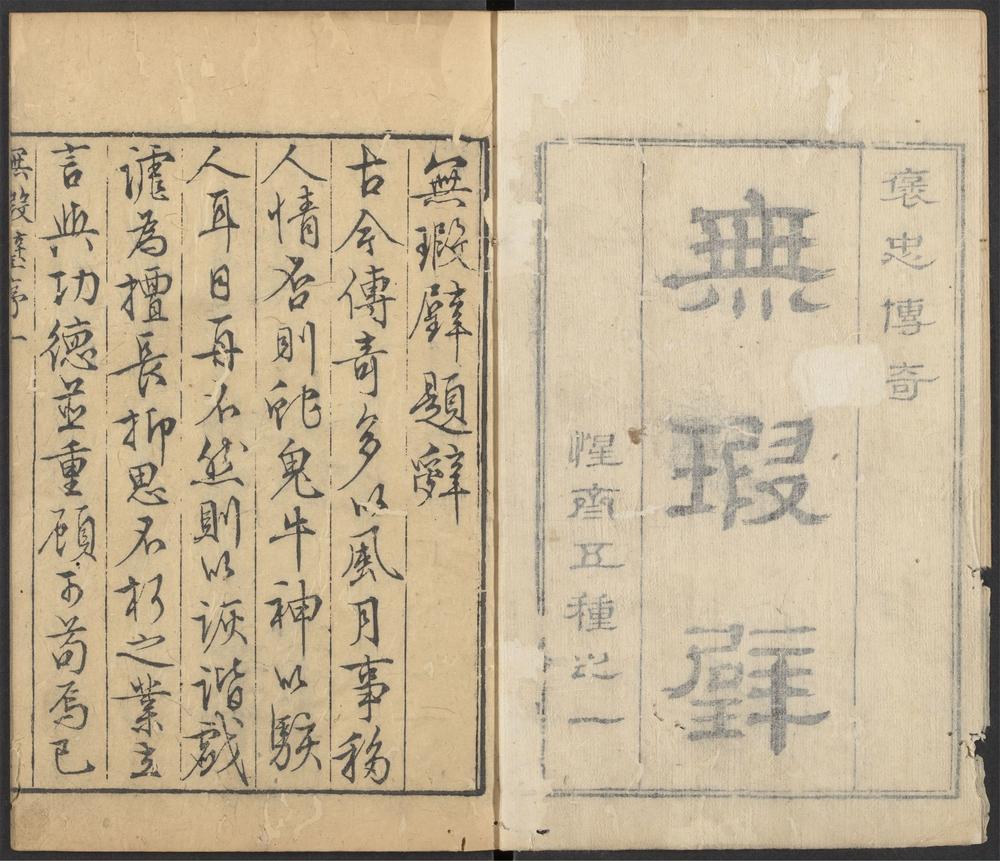 褒忠傳奇
無瑕璧
惺齋五種之一
無瑕璧題辭
古今傳奇多以風月事移
人情否則蛇鬼牛神以駭
人耳目再不然則以詼諧戲
謔為擅長抑思不朽之業立
言與功德並重顧可苟焉已
無瑕璧序 一